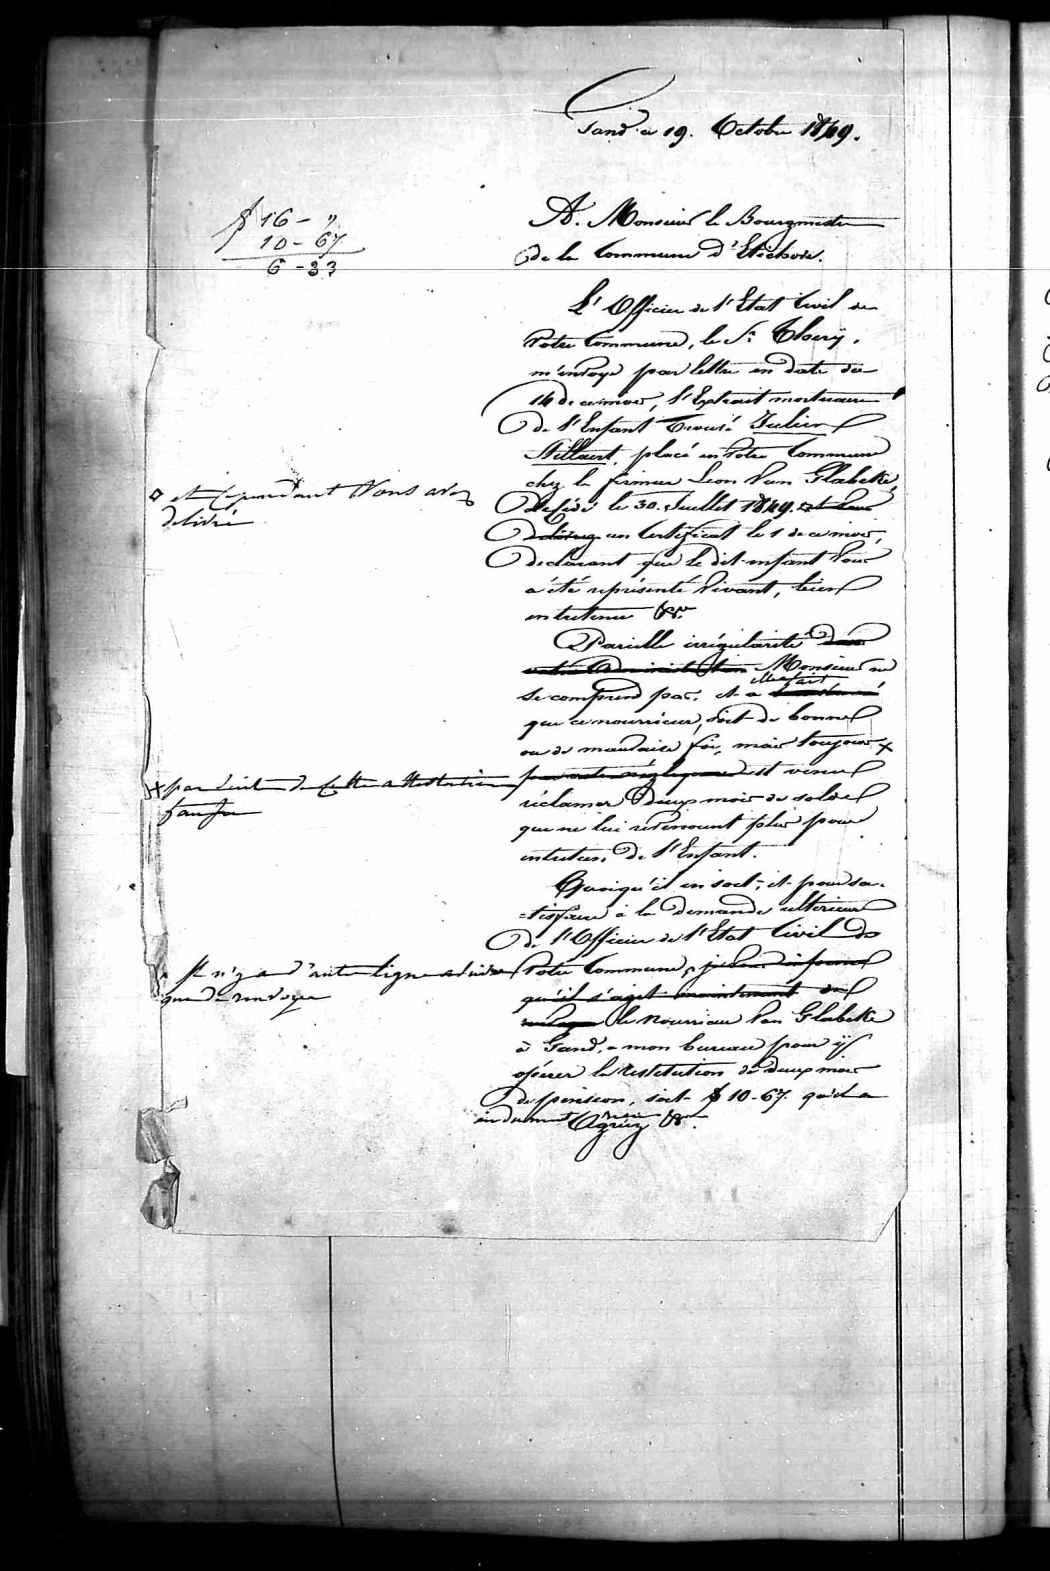 Gand ce 19. Octobre 1849.
f 16 - "
10 - 67
6 - 33
A. Monsieur le Bourgmestre
de la Commune d'Etichove.
L'Officier de l'Etat Civil de
Votre Commune, le Sr.
m'envoye par lettre en date du
14 de ce mois, l'Extrait mortuaire
de l'Enfant Trouvé Julien
placé en Votre Commune
chez le fermier Leon Van Glabeke,
décédé le 30. Juillet 1849. et Vous
◊ et cependant Vous avez
délivré
délivrez un Certificat le 1 de ce mois,
declarant que le dit enfant Vous
a été représenté Vivant, bien
entretenu &a.
Pareille irrégularité dans
votre Administration Monsieur ne
se comprend pas. et a
elle a fait
que ce nourricier, soit de bonne
ou de mauvaise foi, mais toujours x
x par suite de cette attestation
fausse
par votre négligence est venu
réclamer deux mois de solde
que ne lui revenount plus pour
entretien de l'Enfant.
Quoiqu'il en soit, et pour sa-
=tisfaire à la demande ulterieure
de l'Officier de l'Etat Civil de
Votre Commune,
il n'y a d'autre ligne à suivre
que de renvoyer
qu'il s'agit maintenant de
le Nourricier Van Glabeke
à Gand, a mon bureau pour ÿ
opérer la restitution de deux mois
de pension, soit f 10-67. qu'il a
indument
Agréez &a.